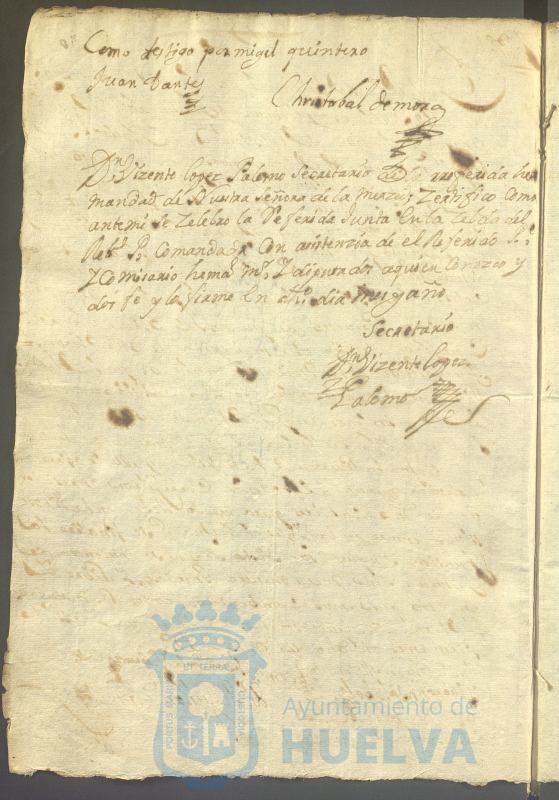 Como testigo por migel quintero
Juan Dantes
Christobal de mora
Dn Vizente lopez Palomo Secretario de la rreferida her
mandad de Nuestra Señora de la merzd Zertifico Como
ante mi se Zelebro la Referida Junta En la Zelda del
Rdo Pe Comendador Con asistenzia de el Referido Pe
Y Comisario hermo mor Y diputados a quien Conozco y
doi fe y lo firme En dho dia mes y año
Secretario
Dn Vizente lopez
Palomo
PORTUS MARIS
ET TERRÆ
CUSTODIA
Ayuntamiento de
HUELVA